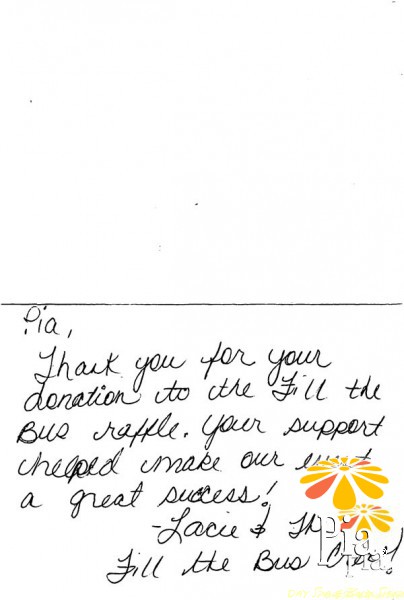 Pia,
Thank you for your
donation to the Fill the
Bus raffle. Your support
helped make our event
a great success!
-Lacie & The
Fill the Bus Crew!
Pia
Pia!